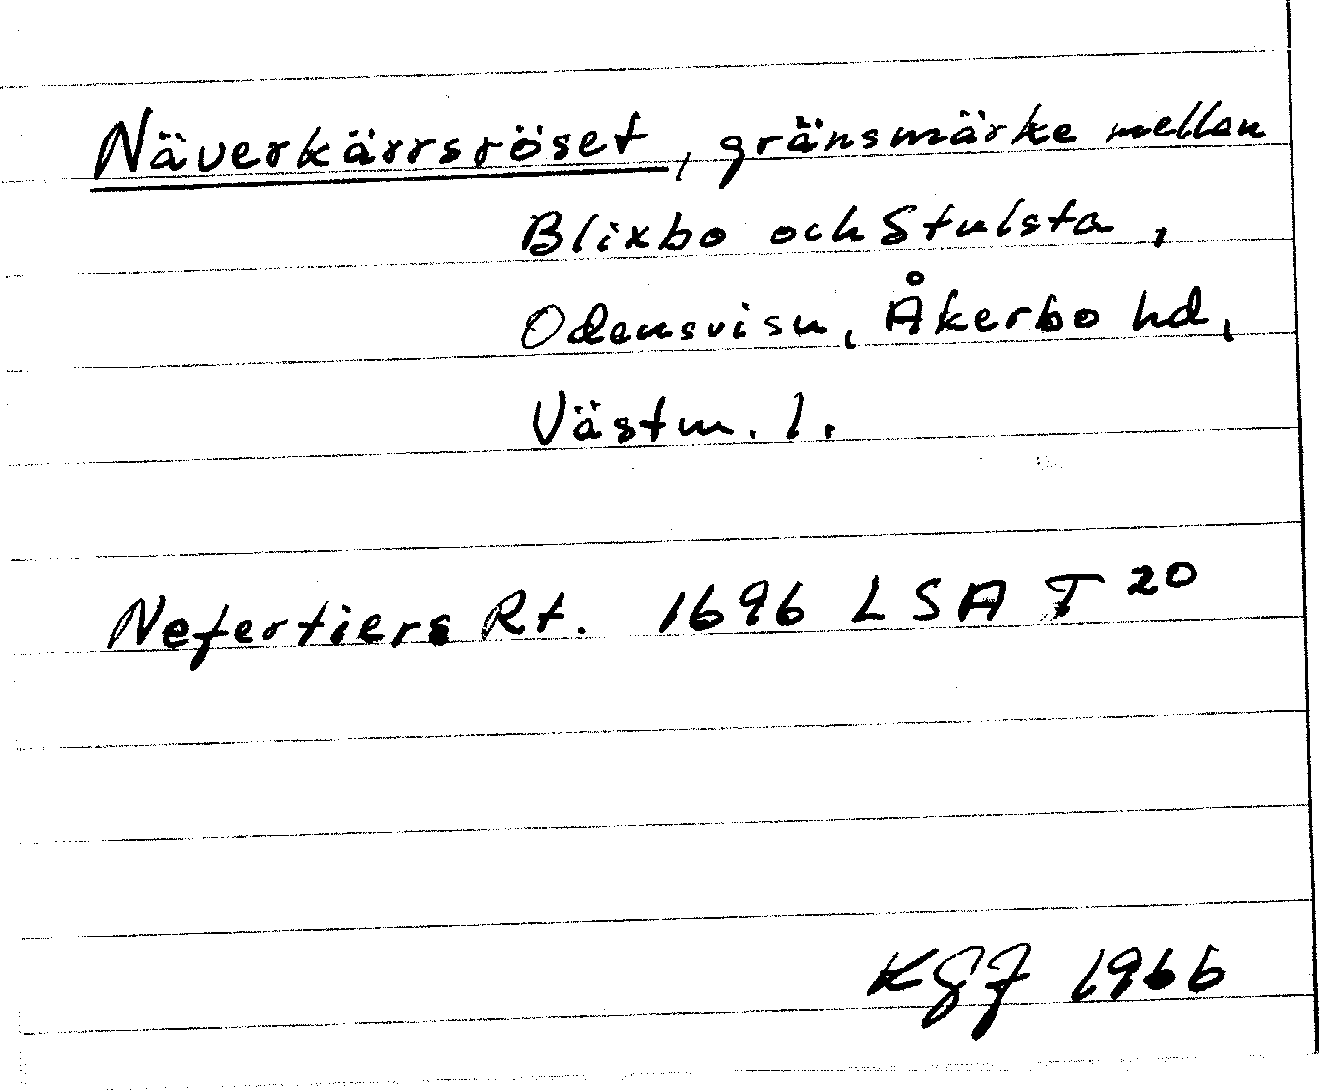 Näverkärrsröset, gränsmärke mellan
Blixbo och Stulsta,
Odensvisn, Åkerbo hd,
Västm. l.
Nefertiers Rt. 1696 LSA T 20
KGJ 1966